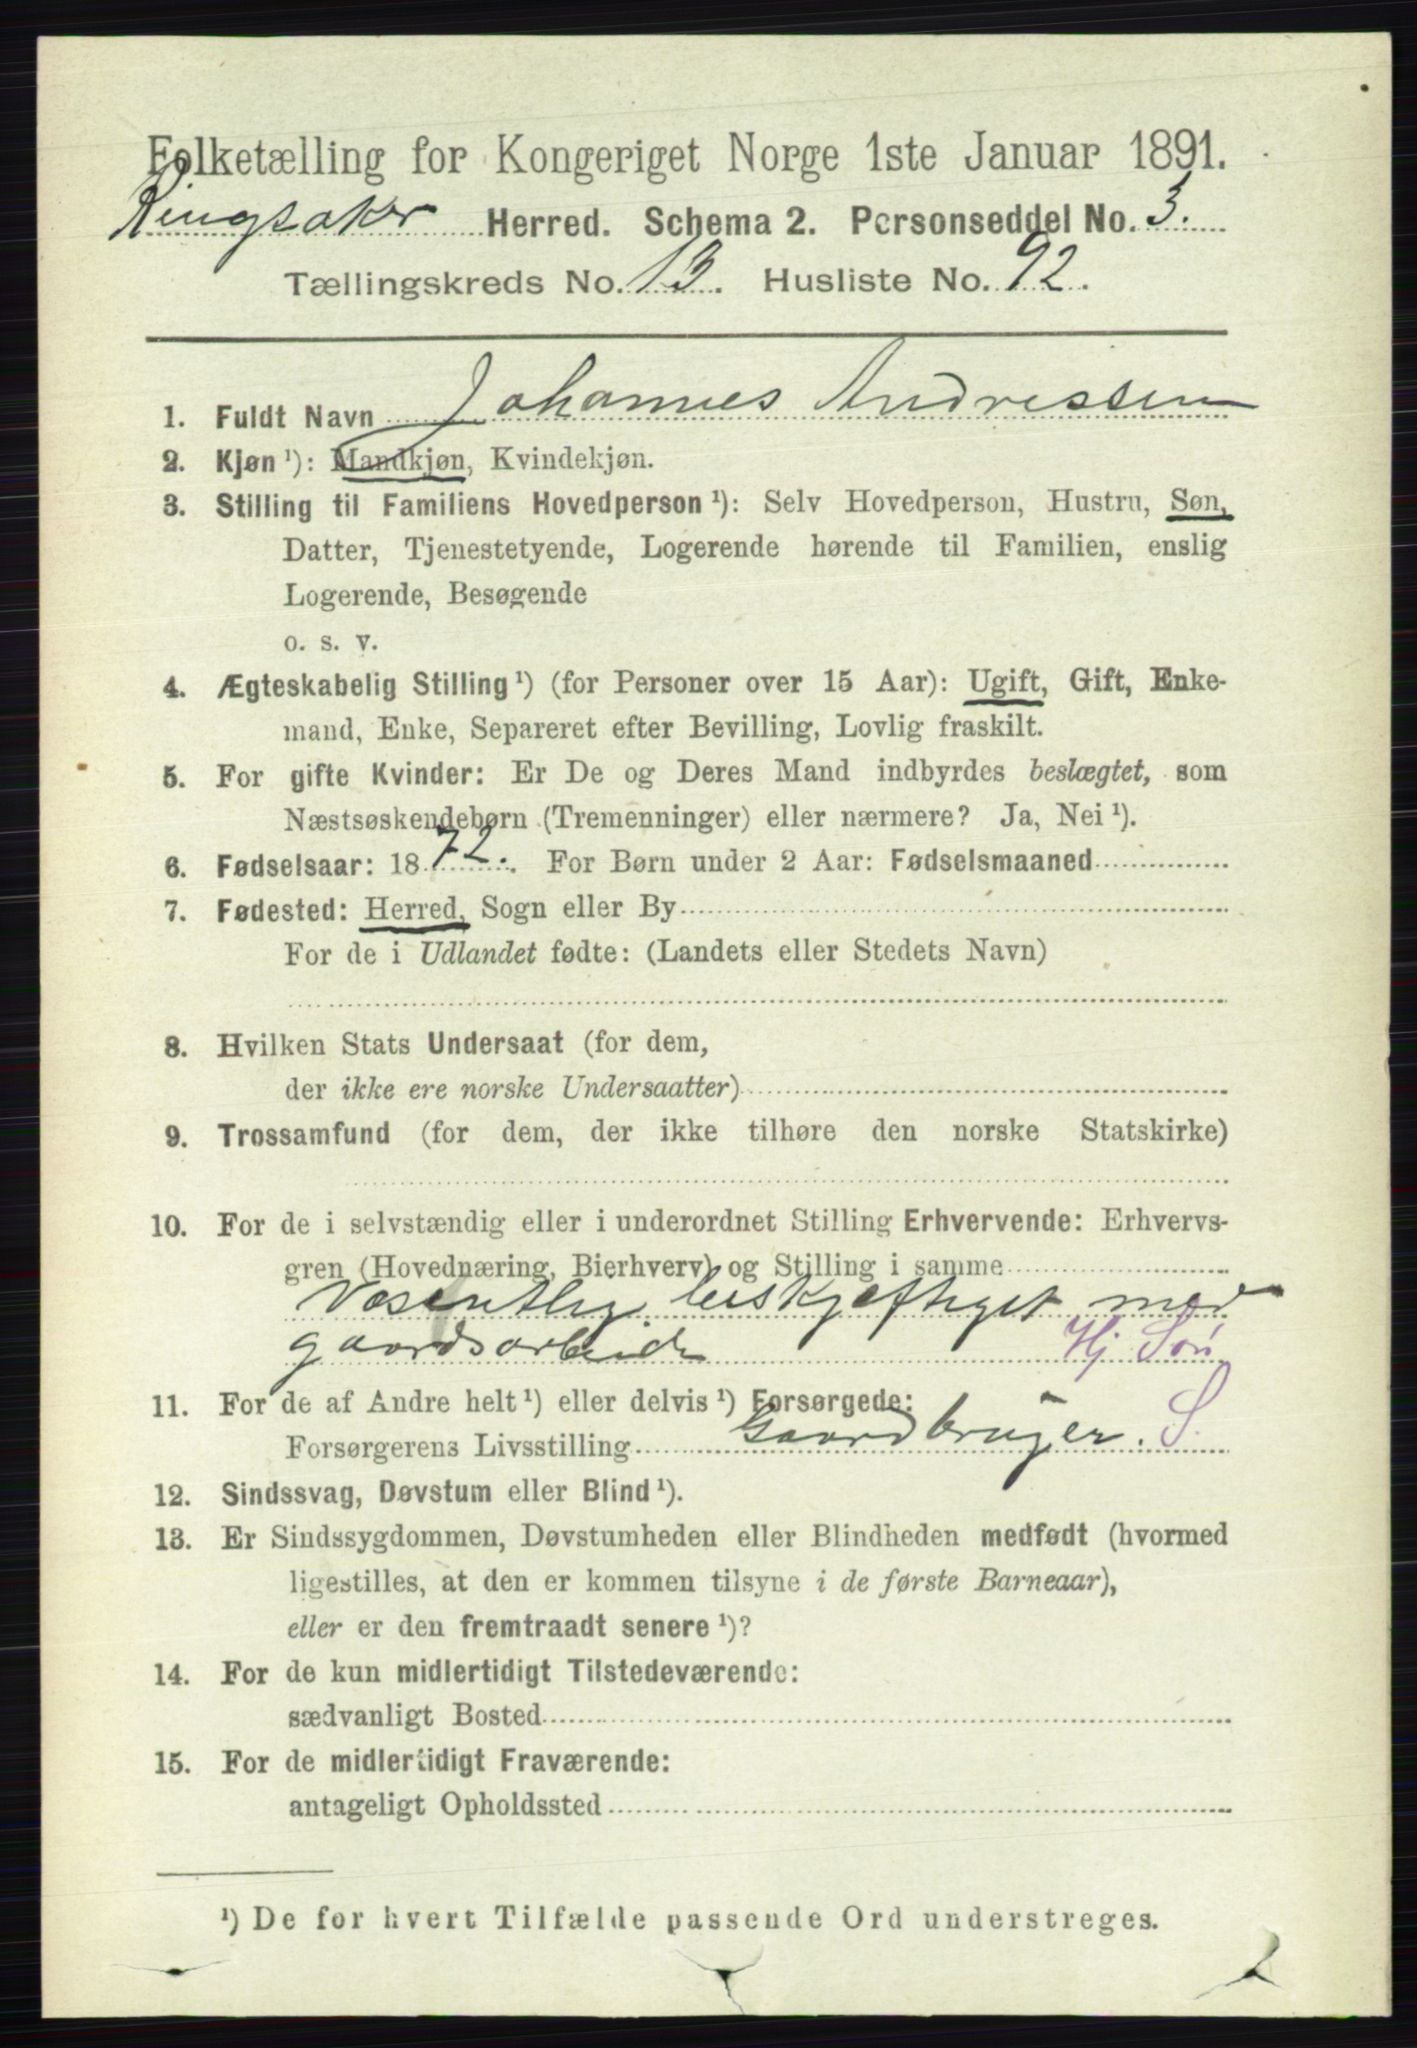 Folketælling for Kongeriget Norge 1ste Januar 1891.
Ringsaker Herred. Schema 2. Personseddel No. 3.
Tællingskreds No. 13. Husliste No. 92.
1. Fuldt Navn Johannes Andressen
2. Kjøn ¹): Mandkjøn, Kvindekjøn.
3. Stilling til Familiens Hovedperson ¹): Selv Hovedperson, Hustru, Søn,
Datter, Tjenestetyende, Logerende hørende til Familien, enslig
Logerende, Besøgende
o. s. v.
4. Ægteskabelig Stilling ¹) (for Personer over 15 Aar): Ugift, Gift, Enke-
mand, Enke, Separeret efter Bevilling, Lovlig fraskilt.
5. For gifte Kvinder: Er De og Deres Mand indbyrdes beslægtet, som
Næstsøskendebørn (Tremenninger) eller nærmere? Ja, Nei ¹).
6. Fødselsaar: 1872. For Børn under 2 Aar: Fødselsmaaned
7. Fødested: Herred, Sogn eller By
For de i Udlandet fødte: (Landets eller Stedets Navn)
8. Hvilken Stats Undersaat (for dem,
der ikke ere norske Undersaatter)
9. Trossamfund (for dem, der ikke tilhøre den norske Statskirke)
10. For de i selvstændig eller i underordnet Stilling Erhvervende: Erhvervs-
gren (Hovednæring, Bierhverv) og Stilling i samme
Væsentlig beskjæftiget med
gaardsarbeide Hj Søn
11. For de af Andre helt ¹) eller delvis ¹) Forsørgede:
Forsørgerens Livsstilling Gaardbruger. S.
12. Sindssvag, Døvstum eller Blind ¹).
13. Er Sindssygdommen, Døvstumheden eller Blindheden medfødt (hvormed
ligestilles, at den er kommen tilsyne i de første Barneaar),
eller er den fremtraadt senere ¹)?
14. For de kun midlertidigt Tilstedeværende:
sædvanligt Bosted
15. For de midlertidigt Fraværende:
antageligt Opholdssted
¹) De for hvert Tilfælde passende Ord understreges.